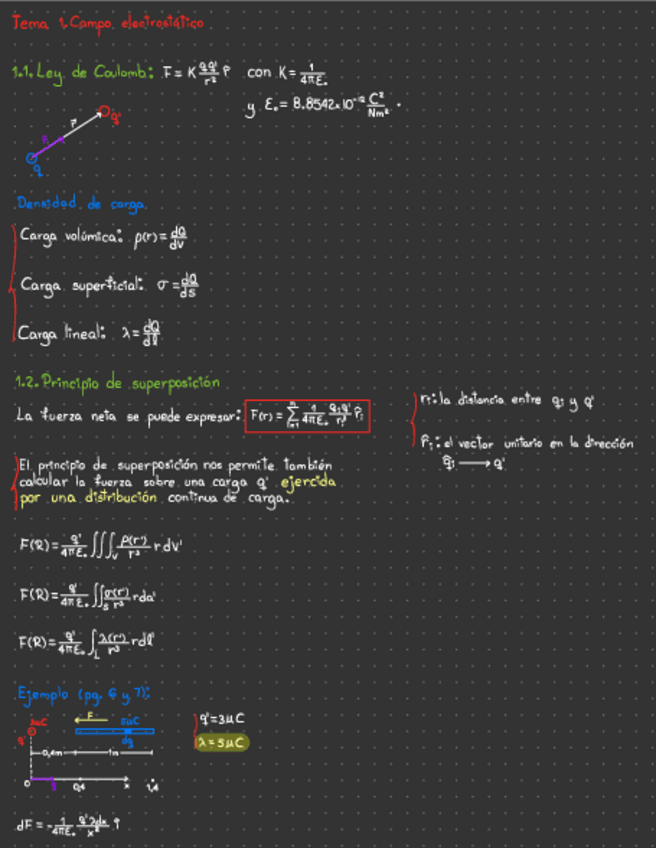 Tema 1. Campo electrostático
1.1. Ley de Coulomb: F = K qq'/r² r̂ con K = 1/4πε₀
y ε₀ = 8.8542x10⁻¹² C²/Nm².
q'
r
r̂
q
Densidad de carga
Carga volúmica: ρ(r) = dQ/dv
Carga superficial: σ = dQ/ds
Carga lineal: λ = dQ/dl
1.2. Principio de superposición
La fuerza neta se puede expresar: F(r) = Σⁿᵢ₌₁ 1/4πε₀ qᵢq'/rᵢ² r̂ᵢ
rᵢ: la distancia entre qᵢ y q'
r̂ᵢ: el vector unitario en la dirección
qᵢ ⟶ q'
El principio de superposición nos permite también
calcular la fuerza sobre una carga q' ejercida
por una distribución continua de carga.
F(R) = q'/4πε₀ ∭ᵥ ρ(r')/r³ r dv'
F(R) = q'/4πε₀ ∬ₛ σ(r')/r³ r da'
F(R) = q'/4πε₀ ∫_L λ(r')/r³ r dl'
Ejemplo (pg. 6 y 7):
3μC
q'
F
5μC
dq
0,4m
1m
0
0,4
x
1,4
q' = 3μC
λ = 5μC
dF = -1/4πε₀ q'λdx/x² î